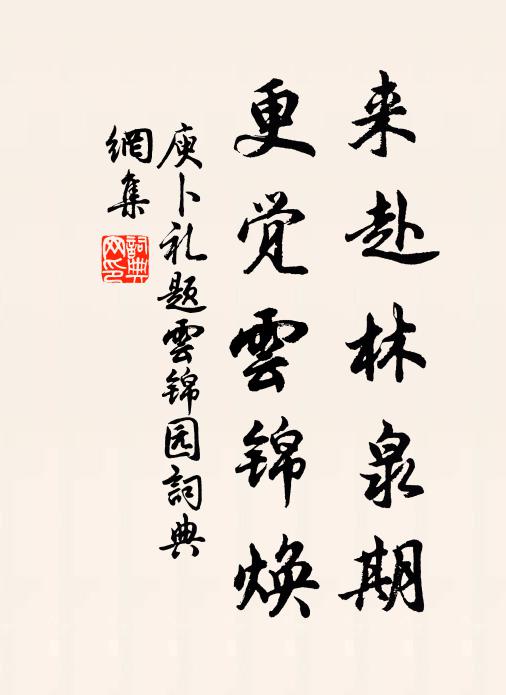 来赴林泉期
更觉雲锦焕
庾卜礼题雲锦园詞典
網集
詞典
网印